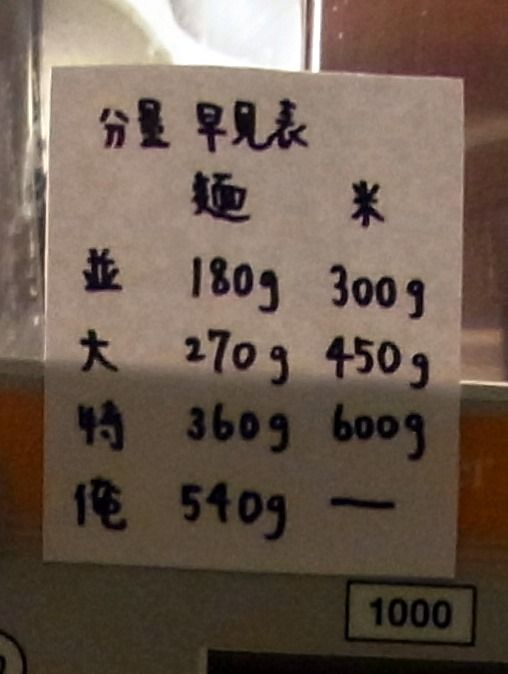 分量 早見表
麺 米
並 180g 300g
大 270g 450g
特 360g 600g
俺 540g ―
1000